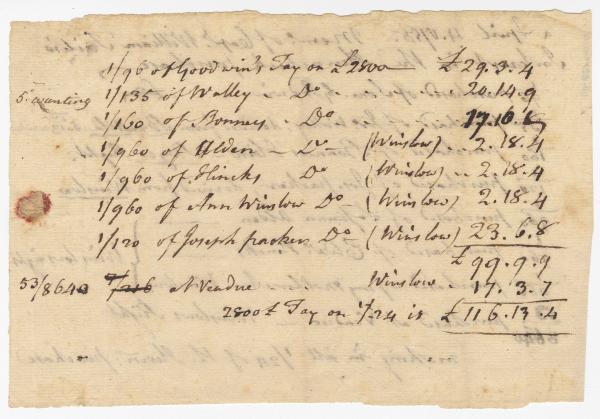 1/96 of Goodwin's Tax on a £2800 £29.3.4
5 wanting 1/135 of Walley Do . 20.14.9
1/160 of Bonney Do 17.10.0
1/960 of Alden - Do - (Winslow) .. 2.18.4
1/960 of Hincks Do (Winslow) .. 2.18.4
1/960 of Ann Winslow Do - (Winslow) 2.18.4
1/120 of Joseph packer Do - (Winslow) 23.6.8
£99.9.9
53/8640 at Vendue Winslow .. 17.3.7
2800£ Tax on 1/24 is £116.13.4